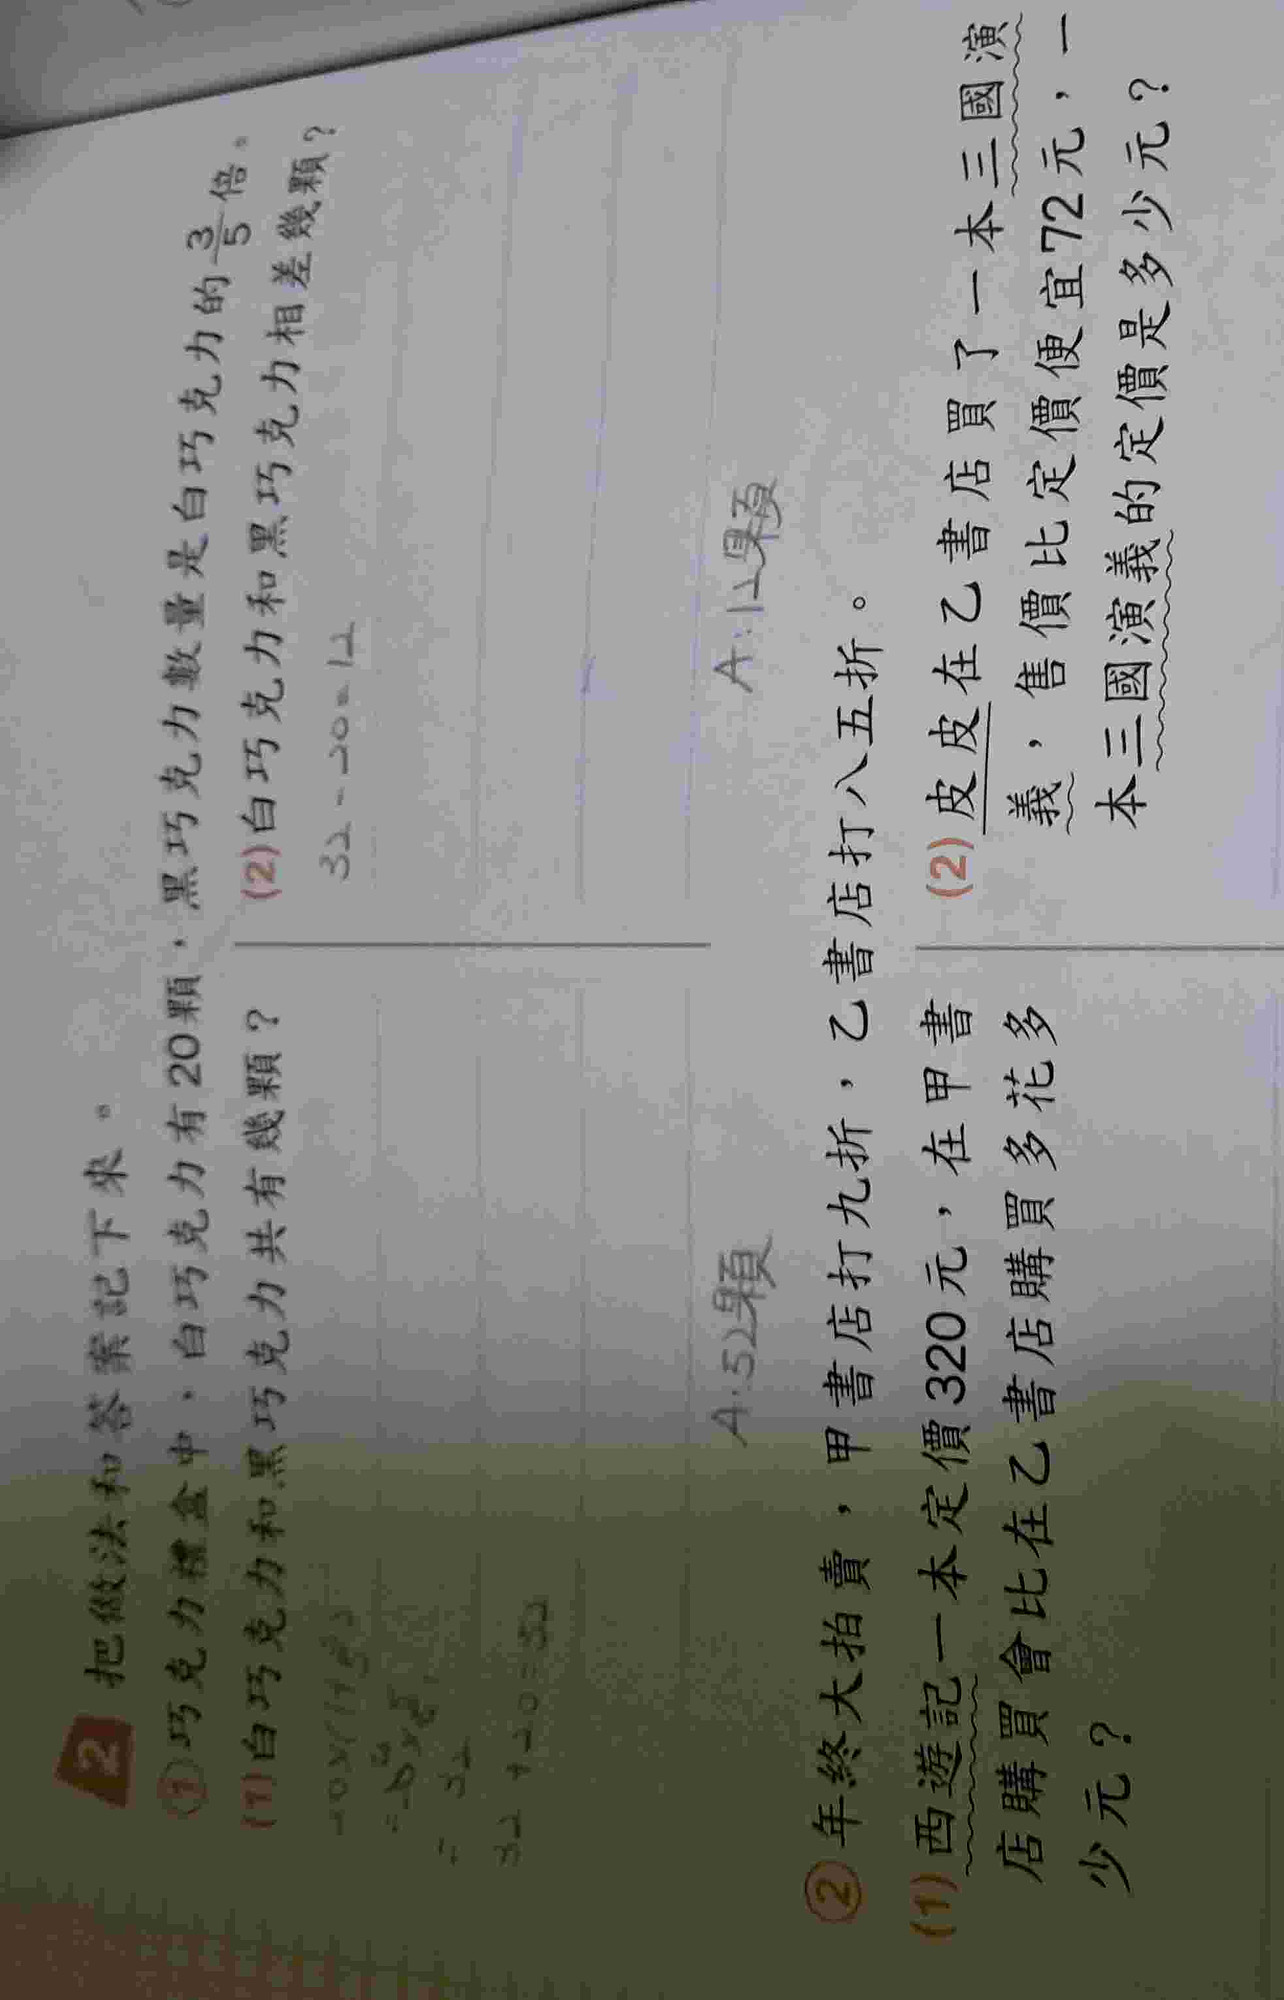 2 把做法和答案記下來。
①巧克力禮盒中，白巧克力有20顆，黑巧克力數量是白巧克力的3/5倍。
(1)白巧克力和黑巧克力共有幾顆？
20×(1+3/5)
=20×8/5
= 32
32+20=52
A:52顆
(2)白巧克力和黑巧克力相差幾顆？
32-20=12
A:12顆
②年終大拍賣，甲書店打九折，乙書店打八五折。
(1)西遊記一本定價320元，在甲書
店購買會比在乙書店購買多花多
少元？
(2)皮皮在乙書店買了一本三國演
義，售價比定價便宜72元，一
本三國演義的定價是多少元？